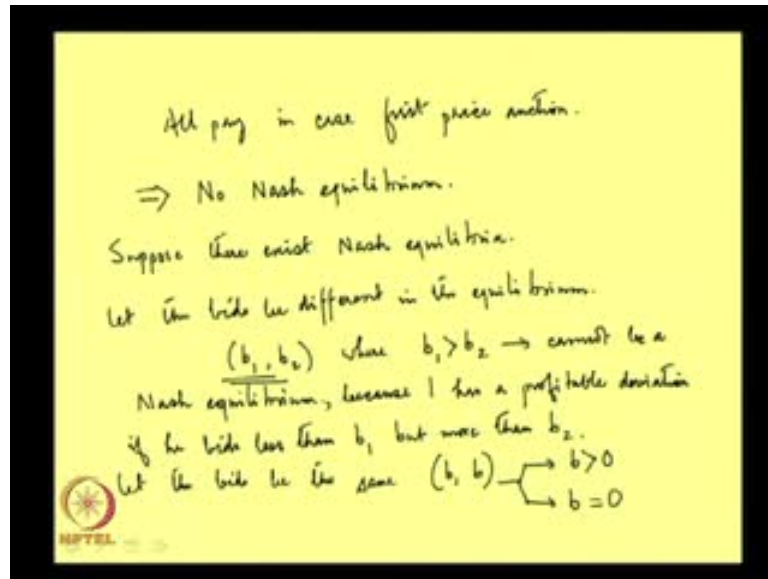 All pay in case first price auction.
⇒ No Nash equilibrium.
Suppose there exist Nash equilibria.
Let the bids be different in the equilibrium.
(b₁, b₂) where b₁ > b₂ → cannot be a
Nash equilibrium, because 1 has a profitable deviation
if he bids less than b₁ but more than b₂.
Let the bids be the same (b, b) → b > 0
→ b = 0
NPTEL